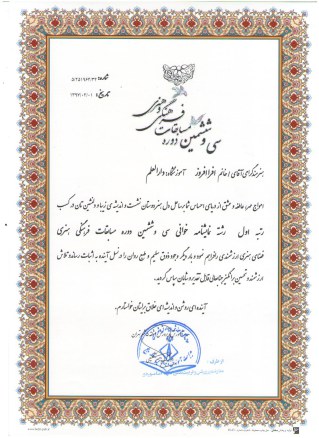 شماره: ۵/۲۵۱۹۶۲۰۳۶
تاریخ: ۱۳۹۷/۰۲/۰۱
سی و ششمین دوره مسابقات فرهنگی و هنری
هنرمند گرامی آقای/خانم افرا افروز آموزشگاه: دارالعلم
امواج مهر، عاطفه و عشق از دریای احساس شما بر ساحل دل هنردوستان نشست و اندیشه‌ی زیبا و دلنشین‌تان در کسب
رتبه اول رشته نمایشنامه خوانی سی و ششمین دوره مسابقات فرهنگی هنری
فضای هنری ارزشمندی را فراهم نمود و بار دیگر وجود ذوق سلیم و طبع روان را در نسل آینده به اثبات رساند و تلاش
ارزشمند و تحسین برانگیز جنابعالی قابل تقدیر و شایان سپاس گردید.
آینده‌ای روشن و اندیشه‌ای خلاق برایتان خواستارم.